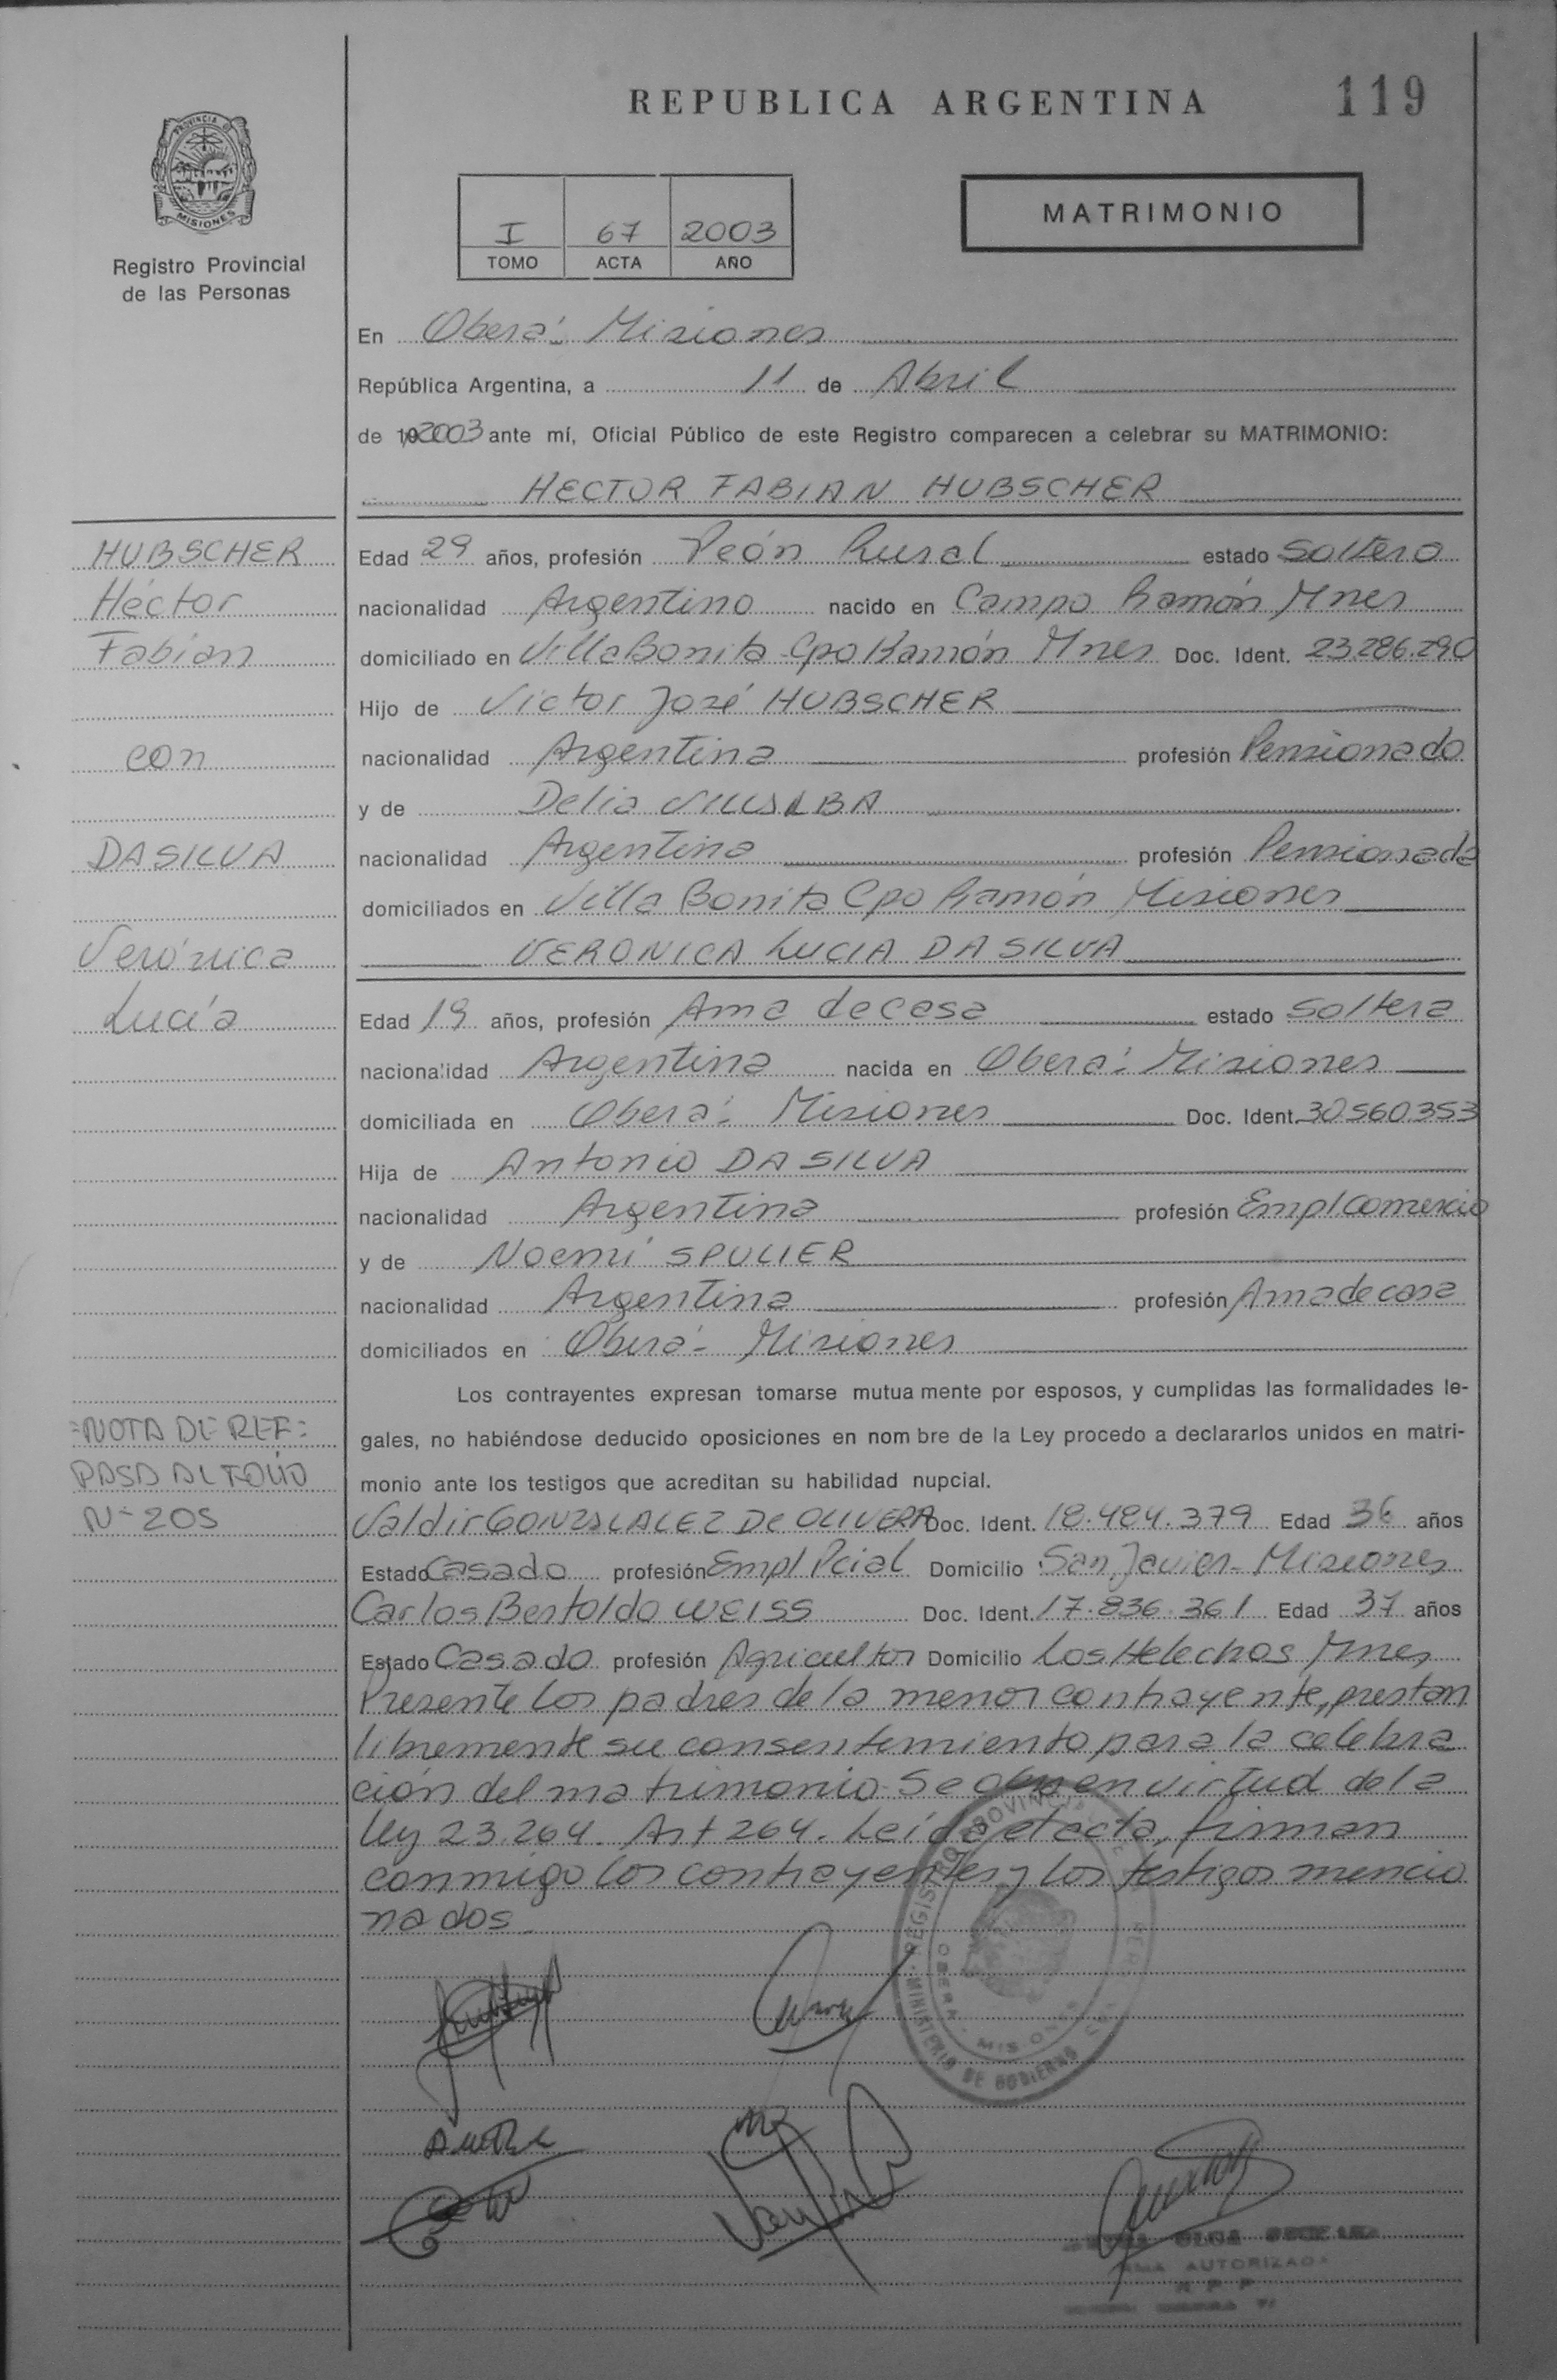 REPUBLICA ARGENTINA
119
PROVINCIA D
MISIONES
Registro Provincial
de las Personas
I 67 2003
TOMO ACTA AÑO
MATRIMONIO
En Oberá - Misiones
República Argentina, a 11 de Abril
de 192003 ante mí, Oficial Público de este Registro comparecen a celebrar su MATRIMONIO:
HECTOR FABIAN HUBSCHER
HUBSCHER
Héctor
Fabián
con
DA SILVA
Verónica
Lucía
Edad 29 años, profesión Peón Rural estado Soltero
nacionalidad Argentino nacido en Campo Ramón Mnes
domiciliado en Villa Bonita Cpo Ramón Mnes Doc. Ident. 23.286.290
Hijo de Víctor José HUBSCHER
nacionalidad Argentina profesión Pensionado
y de Delia VILLALBA
nacionalidad Argentina profesión Pensionada
domiciliados en Villa Bonita Cpo Ramón Misiones
VERONICA LUCIA DA SILVA
Edad 19 años, profesión Ama de casa estado Soltera
nacionalidad Argentina nacida en Oberá - Misiones
domiciliada en Oberá - Misiones Doc. Ident. 30.560.353
Hija de Antonio DA SILVA
nacionalidad Argentina profesión Empl comercio
y de Noemí SPULIER
nacionalidad Argentina profesión Ama de casa
domiciliados en Oberá - Misiones
Los contrayentes expresan tomarse mutua mente por esposos, y cumplidas las formalidades le-
gales, no habiéndose deducido oposiciones en nom bre de la Ley procedo a declararlos unidos en matri-
monio ante los testigos que acreditan su habilidad nupcial.
=NOTA DE REF=
PASA AL FOLIO
Nº 205
Valdir DE OLIVERA Doc. Ident. 18.484.379 Edad 36 años
Estado Casado profesión Empl Pcial Domicilio San Javier - Misiones
Carlos Bertoldo WEISS Doc. Ident. 17.836.361 Edad 37 años
Estado Casado profesión Agricultor Domicilio Los Helechos Mnes
Presente los padres de la menor contrayente, prestan
libremente su consentimiento para la celebra
ción del matrimonio. Se en virtud de la
ley 23.264. Art 264. Leída el acta, firman
conmigo los contrayentes y los testigos mencio
nados.
REGISTRO PROVINCIAL DE
MINISTERIO DE GOBIERNO
OBERA - MISIONES
OLGA
AUTORIZADA
R P P